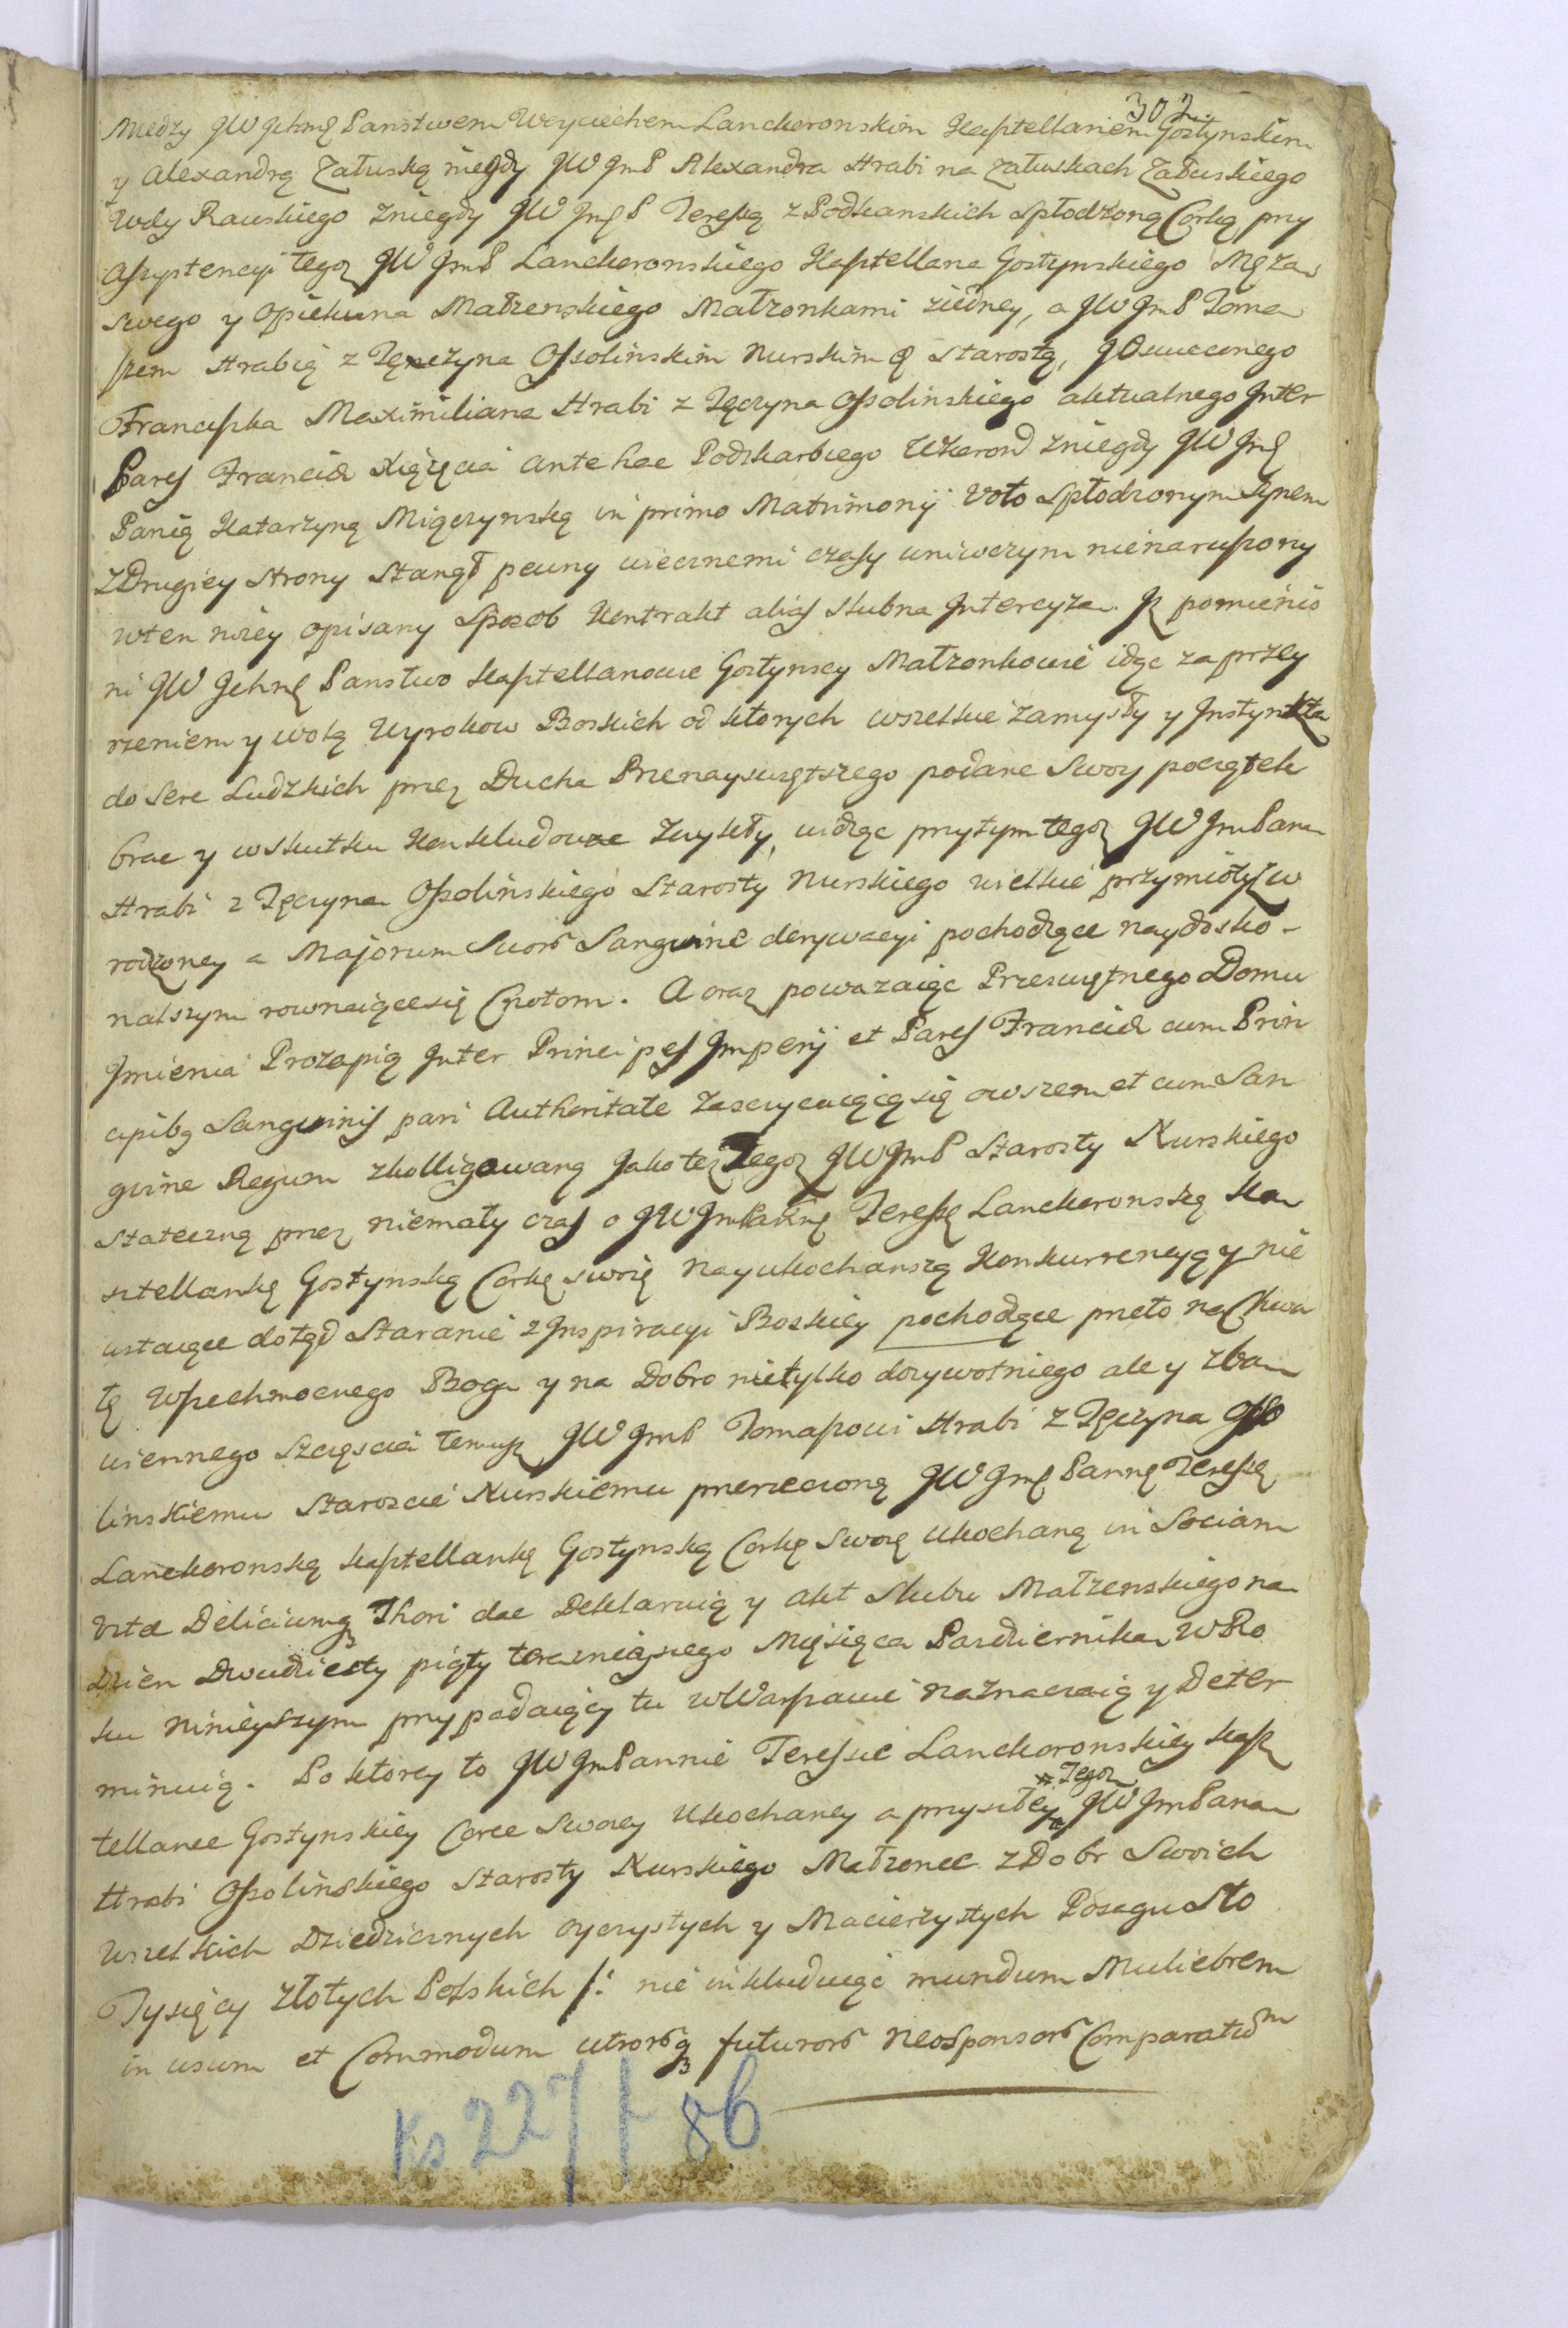 302.
Między JW Jchmę Państwem Woyciechem Lanckoronskim Kasztellanem Gostynskim
y Alexandrą Załuską niegdy JW JmP Alexandra Hrabi na Załuskach Załuskiego
Wdy Rawskiego zniegdy JW JmęP Tereszą z Podkanskich Spłodzoną Corką, przy
Assystencyi tegoz JW JmP Lanckoronskiego Kasztellana Gostynskiego Męza
swego y Opiekuna Małzenskiego Małzonkami ziedney, a JW JmP Toma
szem Hrabią z Tęczyna Ossolinskim Nurskim Starostą, JOswieconego
Franciszka Maximiliana Hrabi z Tęczyna Ossolinskiego aktualnego Inter
Pares Franciæ Xiązęcia antehac Podskarbiego WKoron zniegdy JW Jmę
Panią Katarzyną Miączynską in primo Matrimonij Voto Spłodzonym Synem
z Drugiey Strony Stanął pewny wiecznemi czasy uniwczym nienaruszony
wten nizey opisany Sposob Kontrakt alias Slubna Intercyza. Jz pomienio
ni JW Jchmę Panstwo Kasztellanowie Gostynscy Małzonkowie idąc za przey
rzeniem y wolą Wyrokow Boskich od ktorych wszelkie zamysły y Instynkta
do Serc Ludzkich przez Ducha Przenayswiętszego podane Swoy początek
brac y wskutku Konkludowac zwykły, widząc przytym tegoz JW JmPana
Hrabi z Tęczyna Ossolinskiego Starosty Nurskiego wielkie przymioty w
rodzoney a Majorum Suorũ Sanguine derywacyi pochodzące naydosko-
nalszym rownaiącesię Cnotom. A oraz powazaiąc Przeswiętnego Domu
Jmienia Prozapią Inter Principes Imperij et Pares Franciæ cum Prin
cipibq Sanguinis pari Authoritate Zaszczycaiącąsię owszem et cum San
guine Regum zkolligowaną Jako tez Tegoz JW JmP Starosty Nurskiego
Stateczną przez niemały czas o JW JmPannę Tereszę Lanckoronską Ka
sztellankę Gostynską Corkę swoię Nayukochanszą Konkurrencyą y nie
ustaiące dotąd Staranie z Inspiracyi Boskiey pochodzące przeto na Chwa
łę Wszechmocnego Boga y na Dobro nietylko dozywotniego ale y zba
wiennego Szczęscia temuz JW JmP Tomaszowi Hrabi z Tęczyna Osso
linskiemu Staroscie Nurskiemu przerzeczoną JW Jmę Pannę Tereszę
Lanckoronską Kasztellankę Gostynską Corkę Swoię Ukochaną in Sociam
Vitæ Deliciumq Thori dac Deklaruią y akt Slubu Małzenskiego na
dzien Dwudziesty piąty teraznieyszego Miesiąca Pazdziernika W Ro
ku ninieyszym przypadaiący tu w Warszawie naznaczaią y Deter
minuią. Po ktorey to JW JmPannie Tereszie Lanckoronskiey Kasz
tellance Gostynskiey Corce Swoiey Ukochaney a przyszłey # Tegoz JW JmPana
Hrabi Ossolinskiego Starosty Nurskiego Małzonce z Dobr Swoich
wszelkich Dziedzicznych oyczystych y Macierzystych Posagu Sto
Tysięcy Złotych Polskich /: nie inkluduiąc mundum Muliebrem
in usum et Commodum utrorũq futurorũ Neosponsorũ Comparatum
Ks 227 f 86